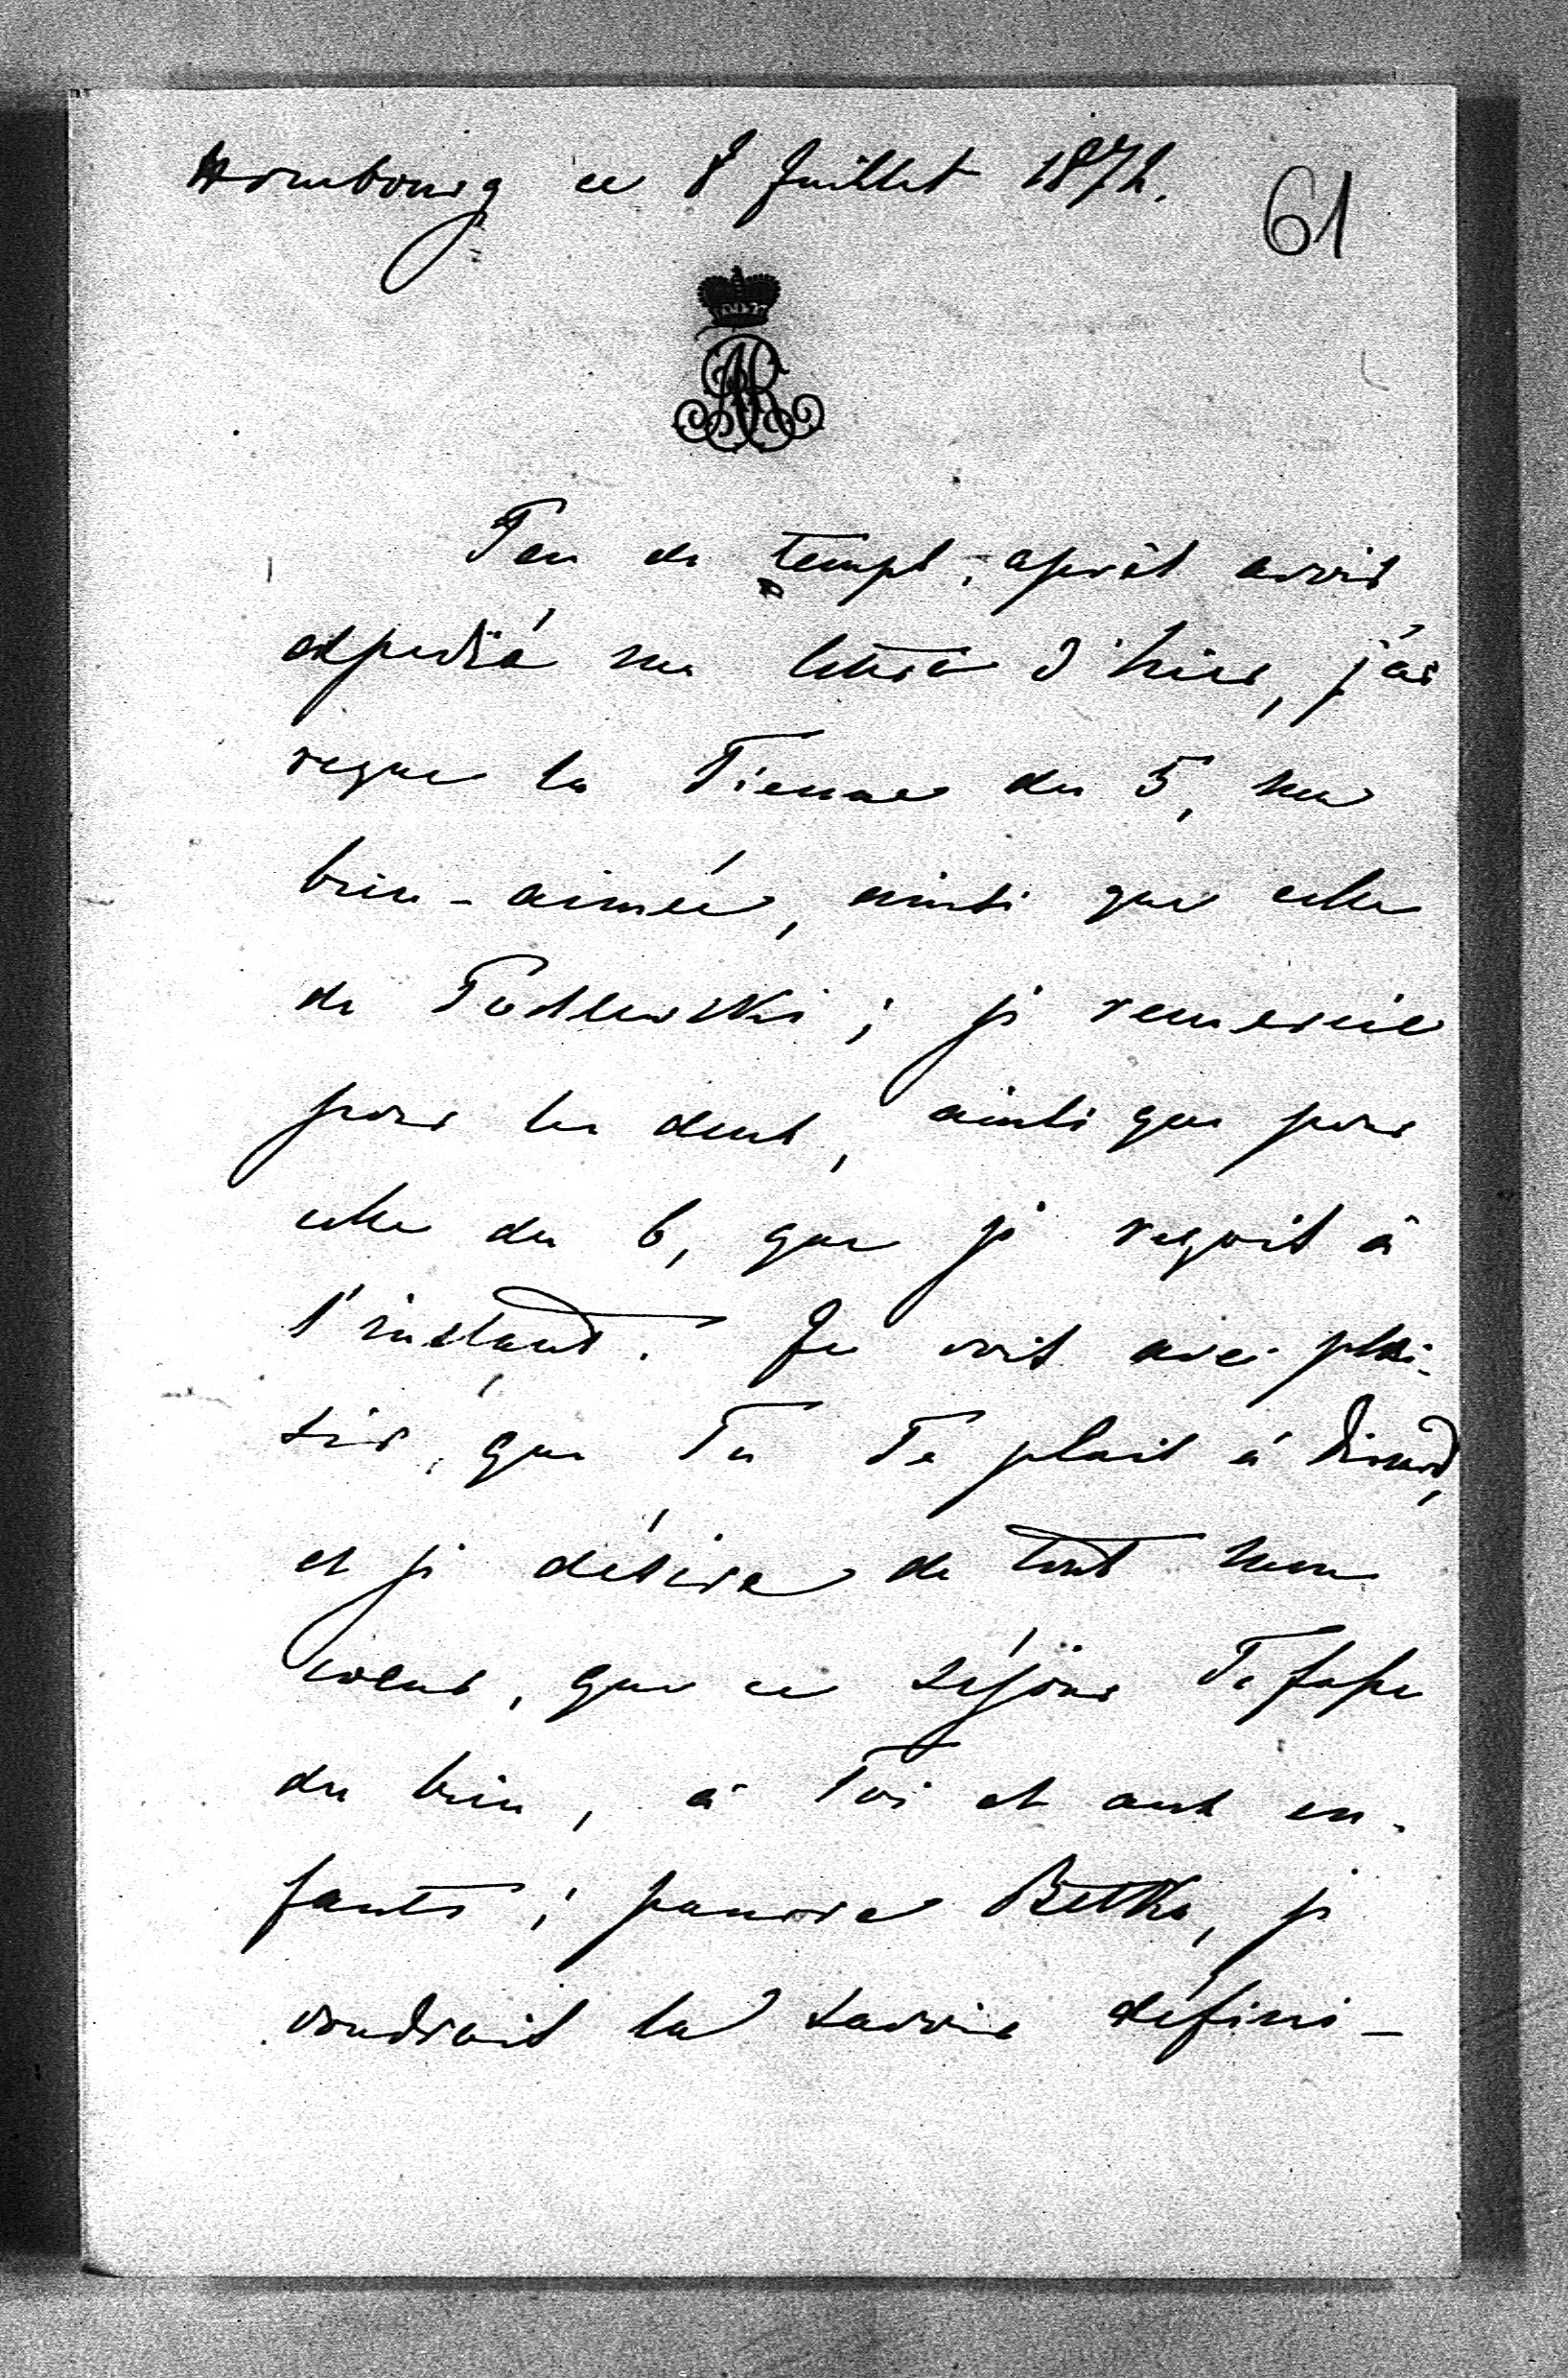 Hombourg ce 8 Juillet 1872.
61
AR
Peu de temps, après avoir
expédié ma lettre d'hier, j'ai
reçue la Tienne du 5, ma
bien-aimée, ainsi que celle
de Podlewski; je remercie
pour les deux, ainsi que pour
celle du 6, que je reçois à
l'instant. Je vois avec plai-
sir, que Tu Te plais à Dinard,
et je désire de tout mon
coeur, que ce séjour Te fasse
du bien, à Toi et aux en-
fants; pauvre Betka, je
voudrais la savoir défini-